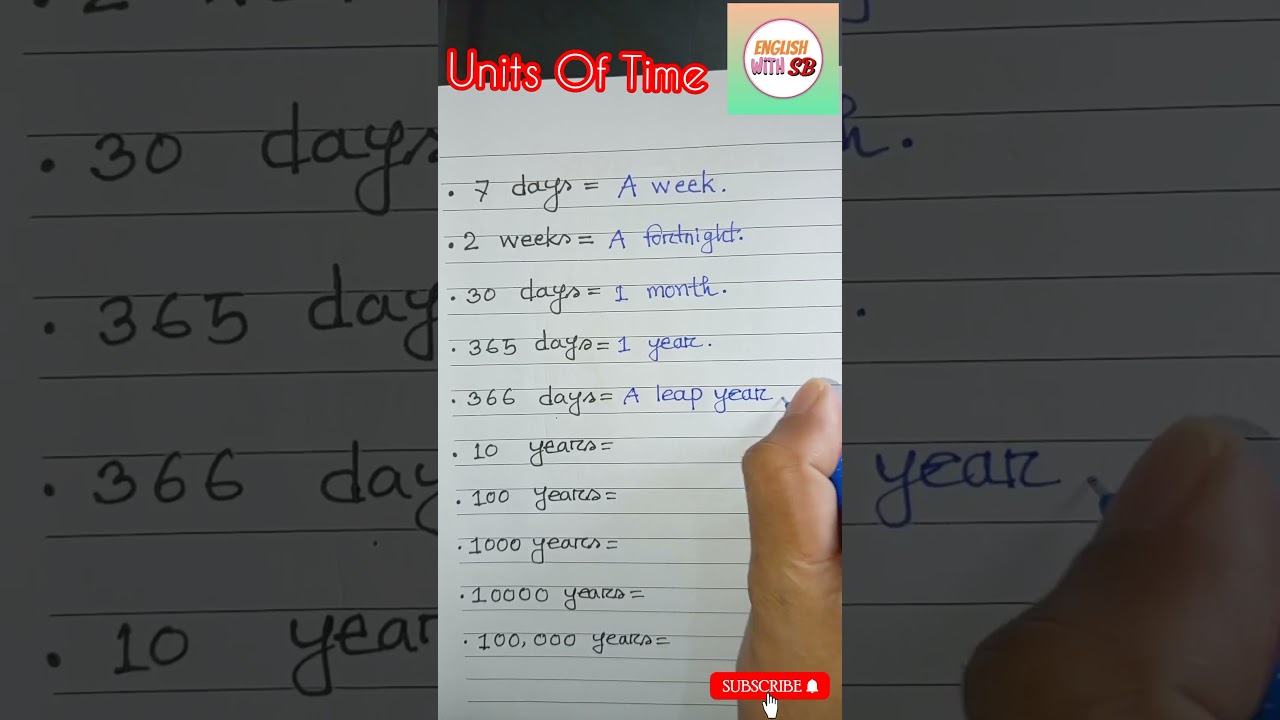 Units Of Time
ENGLISH
WITH SB
. 7 days = A week.
. 2 weeks = A fortnight.
. 30 days = 1 month.
. 365 days = 1 year.
. 366 days = A leap year
. 10 years =
. 100 years =
. 1000 years =
. 10000 years =
. 100,000 years =
SUBSCRIBE
. 30 days
. 365 day
. 366 day
year
. 10 year